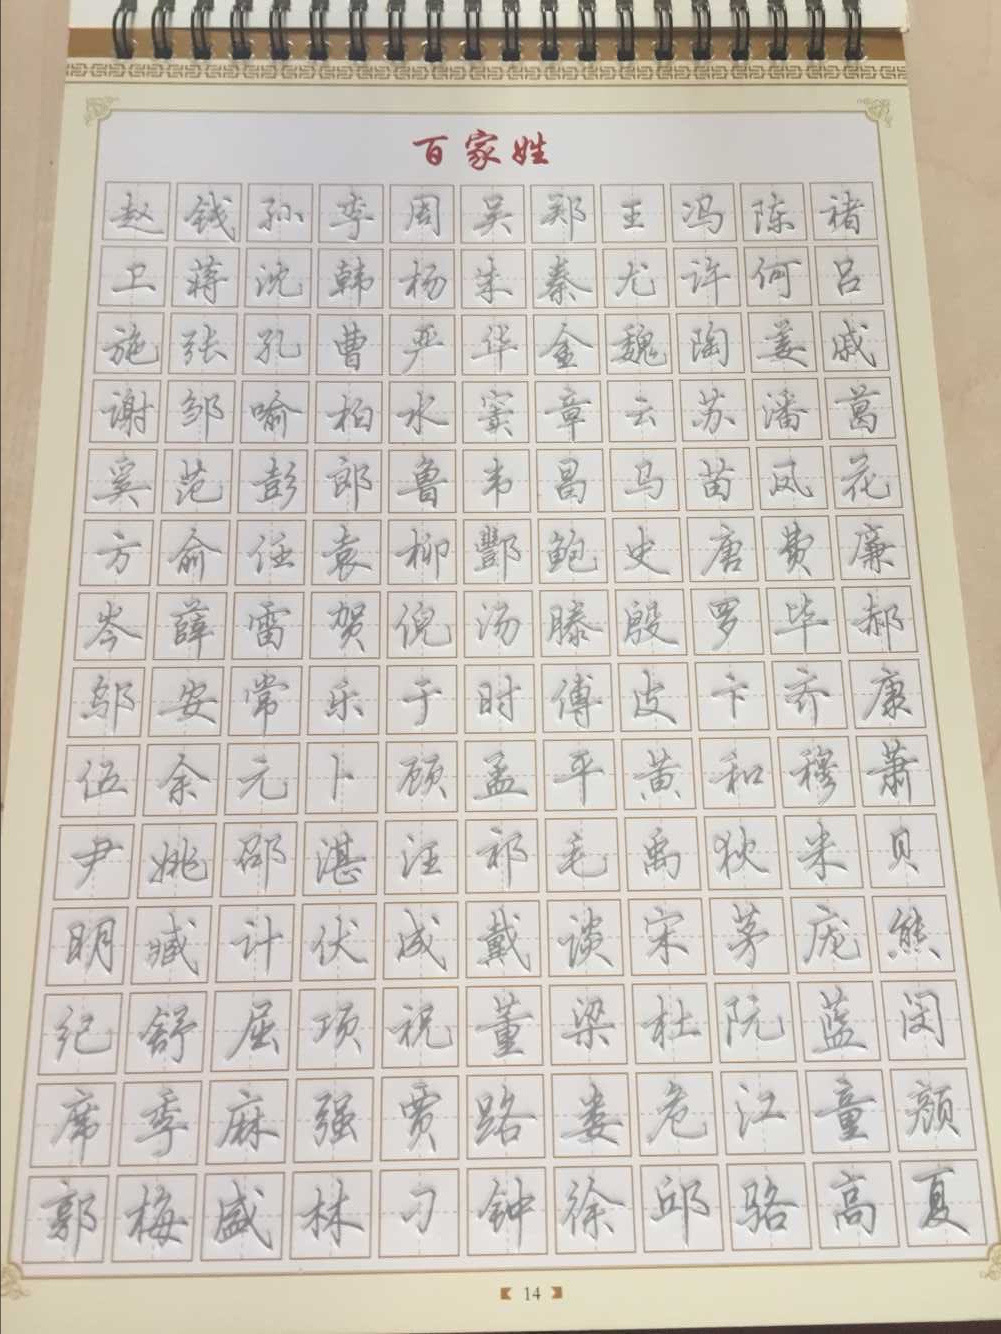 百家姓
赵钱孙李周吴郑王冯陈褚
卫蒋沈韩杨朱秦尤许何吕
施张孔曹严华金魏陶姜戚
谢邹喻柏水窦章云苏潘葛
奚范彭郎鲁韦昌马苗凤花
方俞任袁柳酆鲍史唐费廉
岑薛雷贺倪汤滕殷罗毕郝
邬安常乐于时傅皮卞齐康
伍余元卜顾孟平黄和穆萧
尹姚邵湛汪祁毛禹狄米贝
明臧计伏成戴谈宋茅庞熊
纪舒屈项祝董梁杜阮蓝闵
席季麻强贾路娄危江童颜
郭梅盛林刁钟徐邱骆高夏
14